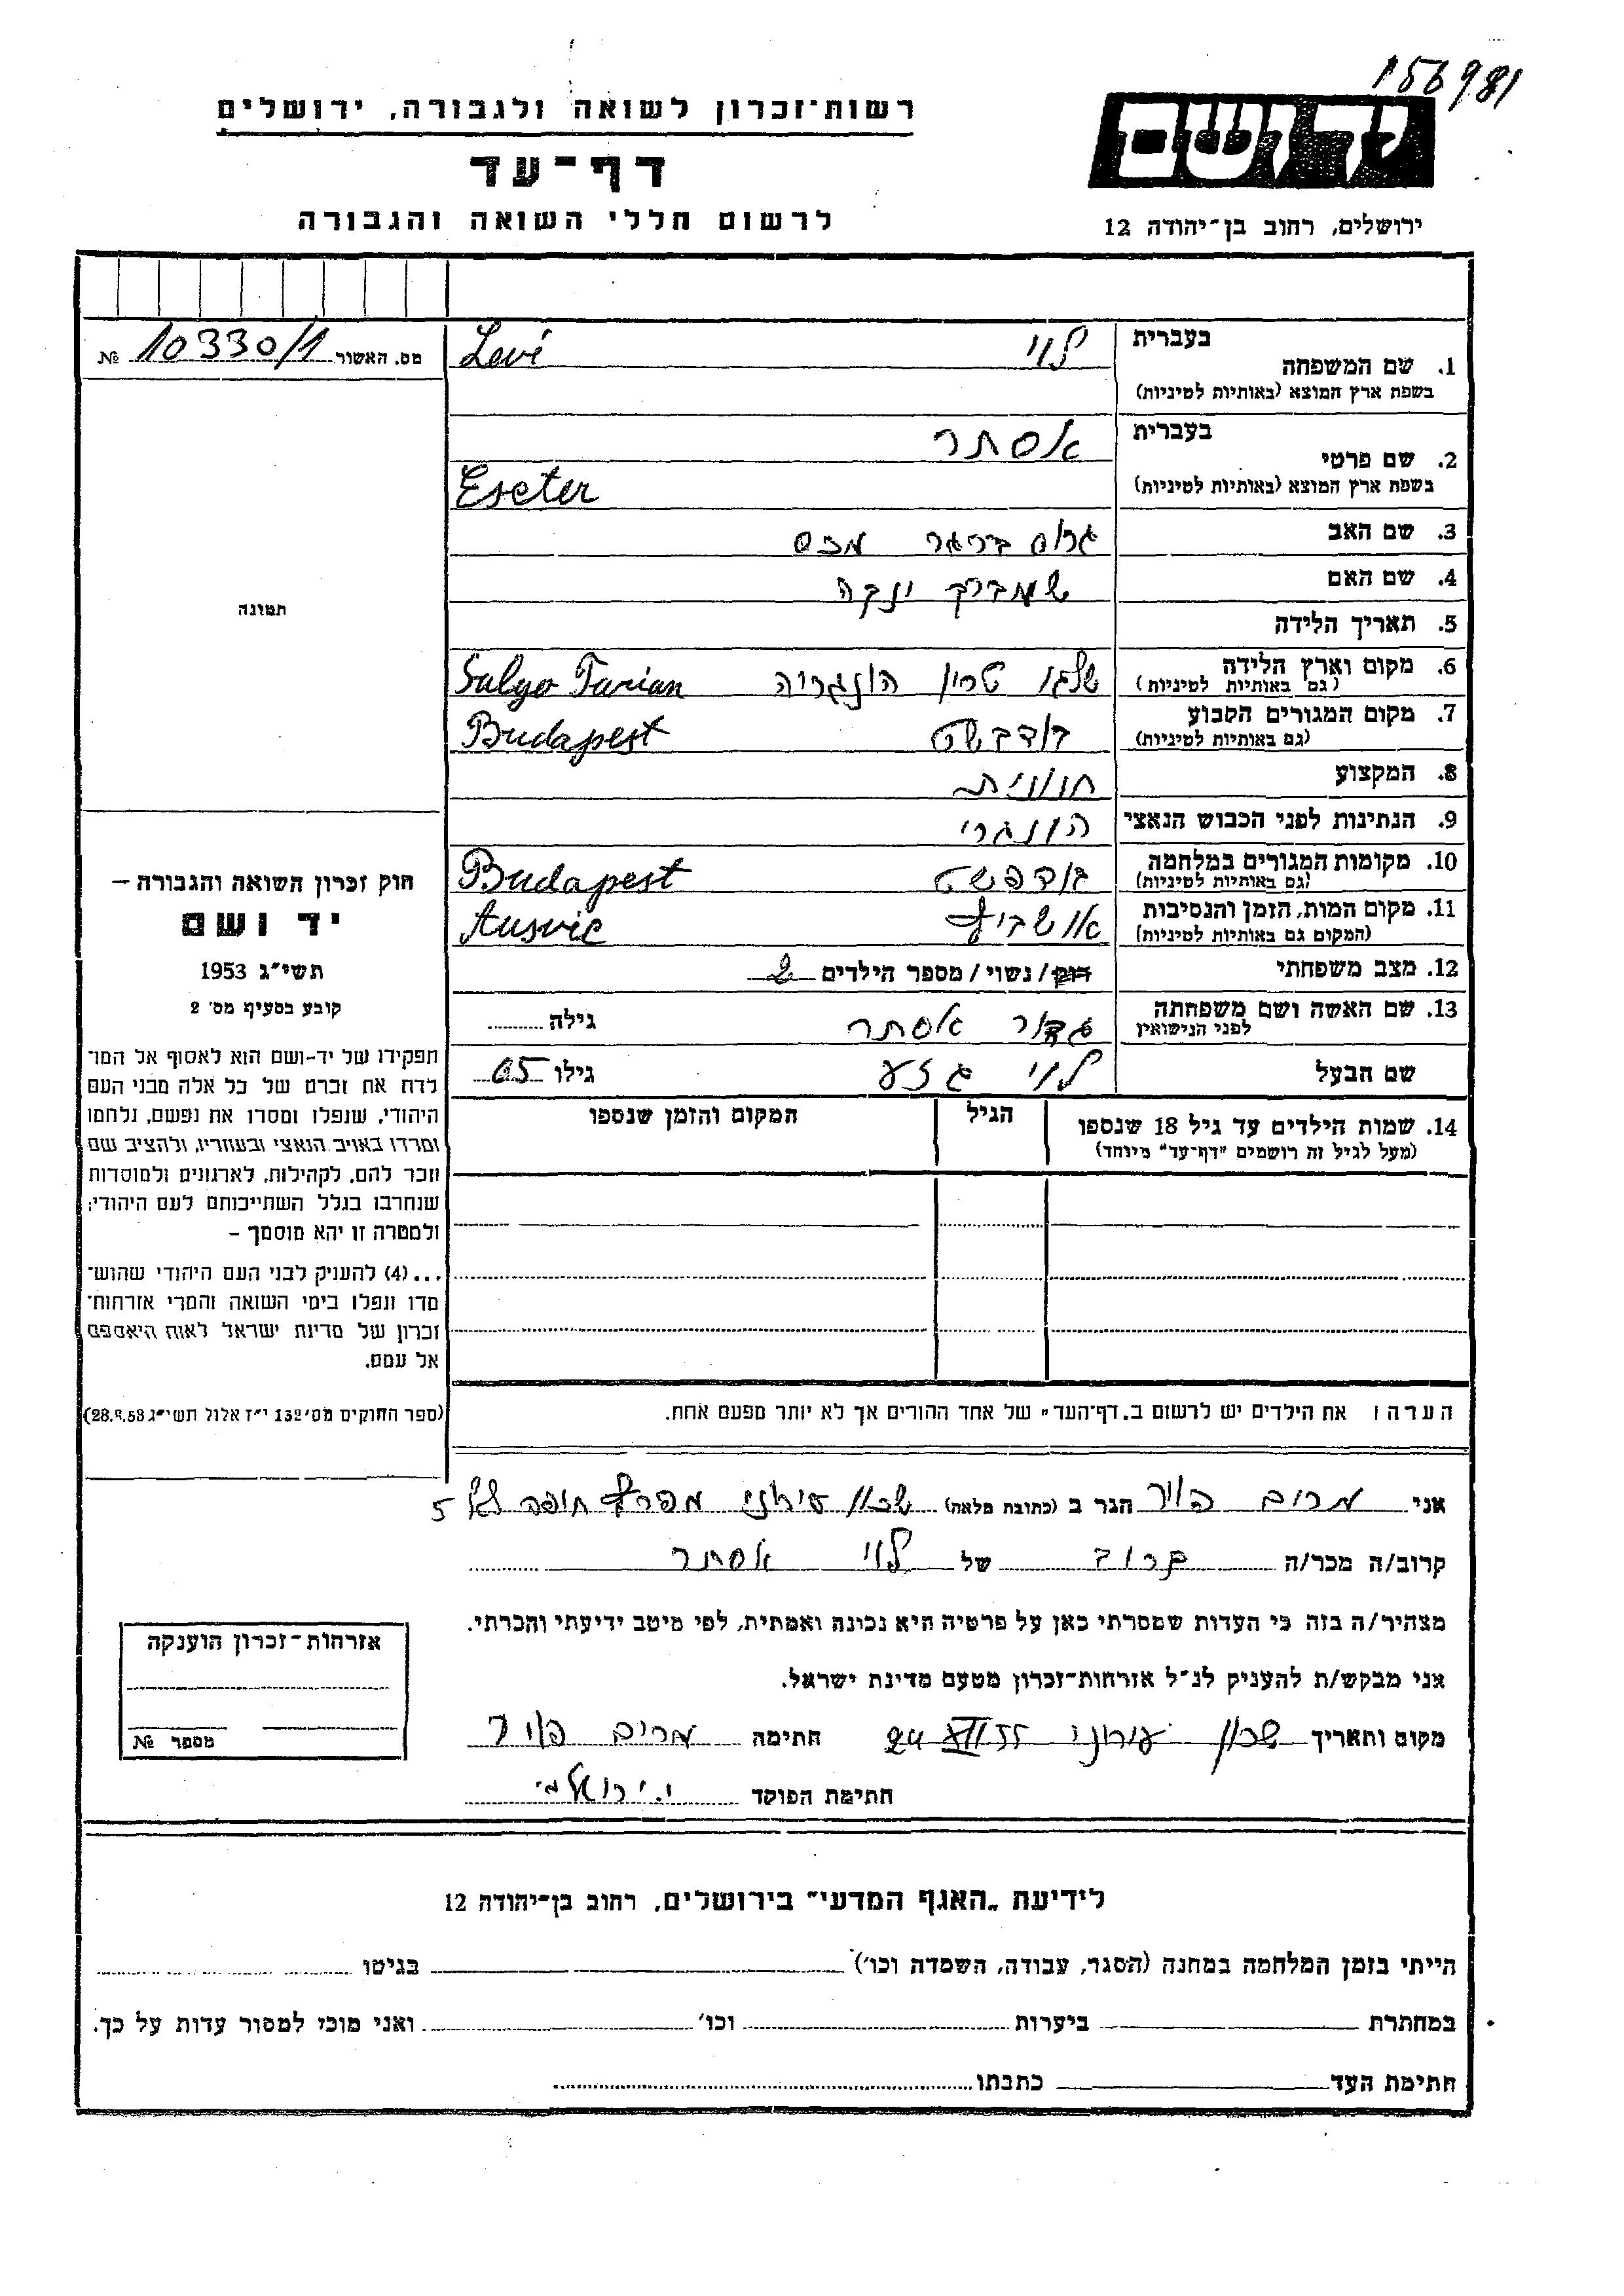 156981
רשות־זכרון לשואה ולגבורה, ירושלים
דף־עד
לרשום חללי השואה והגבורה
יד ושם
ירושלים, רחוב בן־יהודה 12
מס. האשור 10330/1 №
תמונה
חוק זכרון השואה והגבורה –
יד ושם
תשי״ג 1953
קובע בסעיף מס׳ 2
תפקידו של יד-ושם הוא לאסוף אל המו־
לדת את זכרם של כל אלה מבני העם
היהודי, שנפלו ומסרו את נפשם, נלחמו
ומרדו באויב הנאצי ובעוזריו, ולהציב שם
וזכר להם, לקהילות, לארגונים ולמוסדות
שנחרבו בגלל השתייכותם לעם היהודי;
ולמטרה זו יהא מוסמך –
...(4) להעניק לבני העם היהודי שהוש־
מדו ונפלו בימי השואה והמרי אזרחות־
זכרון של מדינת ישראל לאות היאספם
אל עמם.
(ספר החוקים מס׳ 132 י״ז אלול תשי״ג 28.8.53)
בעברית לוי Levi
1. שם המשפחה
בשפת ארץ המוצא (באותיות לטיניות)
בעברית אסתר
2. שם פרטי
בשפת ארץ המוצא (באותיות לטיניות) Eseter
3. שם האב מכס
4. שם האם
5. תאריך הלידה
6. מקום וארץ הלידה הונגריה Salgo Tarian
(גם באותיות לטיניות)
7. מקום המגורים הקבוע Budapest
(גם באותיות לטיניות)
8. המקצוע חנונית
9. הנתינות לפני הכבוש הנאצי הונגרי
10. מקומות המגורים במלחמה בודפשט Budapest
(גם באותיות לטיניות)
11. מקום המות, הזמן והנסיבות אושביץ Ausvic
(המקום גם באותיות לטיניות)
12. מצב משפחתי רווק/ נשוי/ מספר הילדים 2
13. שם האשה ושם משפחתה אסתר גילה
לפני הנישואין
שם הבעל לוי גזע גילו 65
14. שמות הילדים עד גיל 18 שנספו הגיל המקום והזמן שנספו
(מעל לגיל זה רושמים "דף־עד" מיוחד)
הערה: את הילדים יש לרשום ב„דף־העד" של אחד ההורים אך לא יותר מפעם אחת.
אני מרים הגר ב (כתובת מלאה) שכון עירוני מפרץ חיפה 5
קרוב/ה מכר/ה קרוב של לוי אסתר
מצהיר/ה בזה כי העדות שמסרתי כאן על פרטיה היא נכונה ואמתית, לפי מיטב ידיעתי והכרתי.
אני מבקש/ת להעניק לנ״ל אזרחות־זכרון מטעם מדינת ישראל.
מקום ותאריך שכון עירוני 24 XII 55 חתימה מרים
חתימת הפוקד
אזרחות־זכרון הוענקה
מספר №
לידיעת „האגף המדעי" בירושלים, רחוב בן־יהודה 12
הייתי בזמן המלחמה במחנה (הסגר, עבודה, השמדה וכו׳) בגיטו
במחתרת ביערות וכו׳ ואני מוכן למסור עדות על כך.
חתימת העד כתבתו